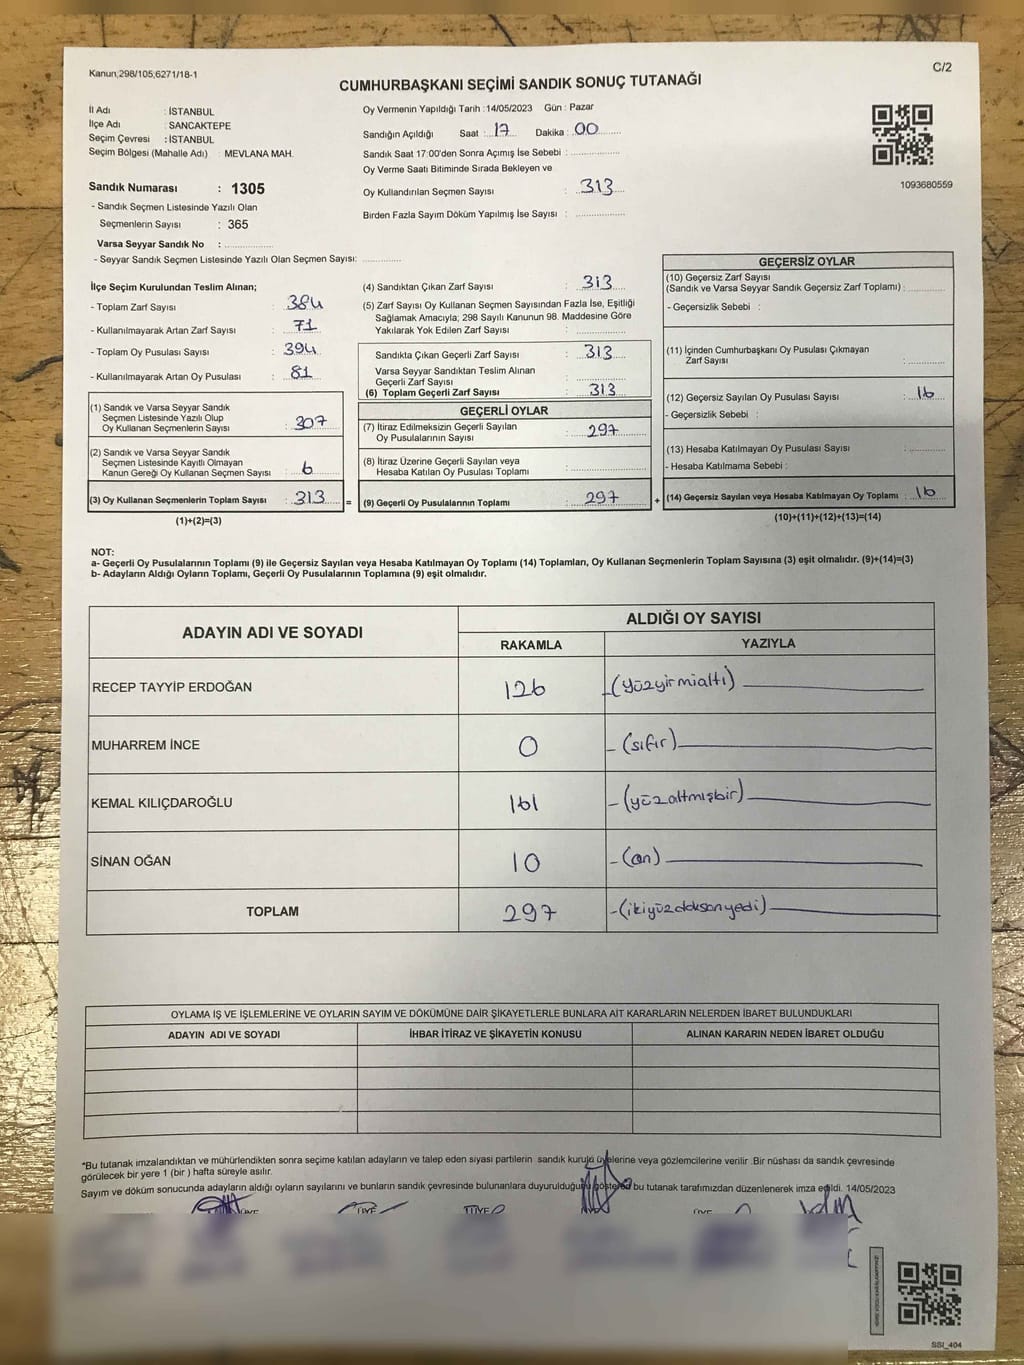 Kanun;298/105;6271/18-1
C/2
CUMHURBAŞKANI SEÇİMİ SANDIK SONUÇ TUTANAĞI
İl Adı : İSTANBUL
İlçe Adı : SANCAKTEPE
Seçim Çevresi : İSTANBUL
Seçim Bölgesi (Mahalle Adı) : MEVLANA MAH.
Oy Vermenin Yapıldığı Tarih :14/05/2023 Gün : Pazar
Sandığın Açıldığı Saat : 17 Dakika : 00
Sandık Saat 17:00'den Sonra Açımış İse Sebebi :
Oy Verme Saati Bitiminde Sırada Bekleyen ve
Oy Kullandırılan Seçmen Sayısı : 313
Birden Fazla Sayım Döküm Yapılmış İse Sayısı :
1093680559
Sandık Numarası : 1305
- Sandık Seçmen Listesinde Yazılı Olan
Seçmenlerin Sayısı : 365
Varsa Seyyar Sandık No :
- Seyyar Sandık Seçmen Listesinde Yazılı Olan Seçmen Sayısı:
İlçe Seçim Kurulundan Teslim Alınan;
- Toplam Zarf Sayısı : 384
- Kullanılmayarak Artan Zarf Sayısı : 71
- Toplam Oy Pusulası Sayısı : 394
- Kullanılmayarak Artan Oy Pusulası : 81
(1) Sandık ve Varsa Seyyar Sandık
Seçmen Listesinde Yazılı Olup
Oy Kullanan Seçmenlerin Sayısı : 307
(2) Sandık ve Varsa Seyyar Sandık
Seçmen Listesinde Kayıtlı Olmayan
Kanun Gereği Oy Kullanan Seçmen Sayısı : 6
(3) Oy Kullanan Seçmenlerin Toplam Sayısı : 313 =
(1)+(2)=(3)
(4) Sandıktan Çıkan Zarf Sayısı : 313
(5) Zarf Sayısı Oy Kullanan Seçmen Sayısından Fazla İse, Eşitliği
Sağlamak Amacıyla; 298 Sayılı Kanunun 98. Maddesine Göre
Yakılarak Yok Edilen Zarf Sayısı :
Sandıkta Çıkan Geçerli Zarf Sayısı : 313
Varsa Seyyar Sandıktan Teslim Alınan
Geçerli Zarf Sayısı :
(6) Toplam Geçerli Zarf Sayısı : 313
GEÇERLİ OYLAR
(7) İtiraz Edilmeksizin Geçerli Sayılan
Oy Pusulalarının Sayısı : 297
(8) İtiraz Üzerine Geçerli Sayılan veya
Hesaba Katılan Oy Pusulası Toplamı :
(9) Geçerli Oy Pusulalarının Toplamı : 297 +
GEÇERSİZ OYLAR
(10) Geçersiz Zarf Sayısı
(Sandık ve Varsa Seyyar Sandık Geçersiz Zarf Toplamı) :
- Geçersizlik Sebebi :
(11) İçinden Cumhurbaşkanı Oy Pusulası Çıkmayan
Zarf Sayısı :
(12) Geçersiz Sayılan Oy Pusulası Sayısı : 16
- Geçersizlik Sebebi :
(13) Hesaba Katılmayan Oy Pusulası Sayısı :
- Hesaba Katılmama Sebebi :
(14) Geçersiz Sayılan veya Hesaba Katılmayan Oy Toplamı : 16
(10)+(11)+(12)+(13)=(14)
NOT:
a- Geçerli Oy Pusulalarının Toplamı (9) ile Geçersiz Sayılan veya Hesaba Katılmayan Oy Toplamı (14) Toplamları, Oy Kullanan Seçmenlerin Toplam Sayısına (3) eşit olmalıdır. (9)+(14)=(3)
b- Adayların Aldığı Oyların Toplamı, Geçerli Oy Pusulalarının Toplamına (9) eşit olmalıdır.
ADAYIN ADI VE SOYADI
ALDIĞI OY SAYISI
RAKAMLA YAZIYLA
RECEP TAYYİP ERDOĞAN 126 (yüzyirmialtı)
MUHARREM İNCE 0 - (sıfır)
KEMAL KILIÇDAROĞLU 161 - (yüzaltmışbir)
SİNAN OĞAN 10 - (on)
TOPLAM 297 - (ikiyüzdoksanyedi)
OYLAMA İŞ VE İŞLEMLERİNE VE OYLARIN SAYIM VE DÖKÜMÜNE DAİR ŞİKAYETLERLE BUNLARA AİT KARARLARIN NELERDEN İBARET BULUNDUKLARI
ADAYIN ADI VE SOYADI İHBAR İTİRAZ VE ŞİKAYETİN KONUSU ALINAN KARARIN NEDEN İBARET OLDUĞU
*Bu tutanak imzalandıktan ve mühürlendikten sonra seçime katılan adayların ve talep eden siyasi partilerin sandık kurulu üyelerine veya gözlemcilerine verilir .Bir nüshası da sandık çevresinde
görülecek bir yere 1 (bir ) hafta süreyle asılır.
Sayım ve döküm sonucunda adayların aldığı oyların sayılarını ve bunların sandık çevresinde bulunanlara duyurulduğunu gösteren bu tutanak tarafımızdan düzenlenerek imza edildi. 14/05/2023
ÜYE ÜYE ÜYE ÜYE
SSI_404